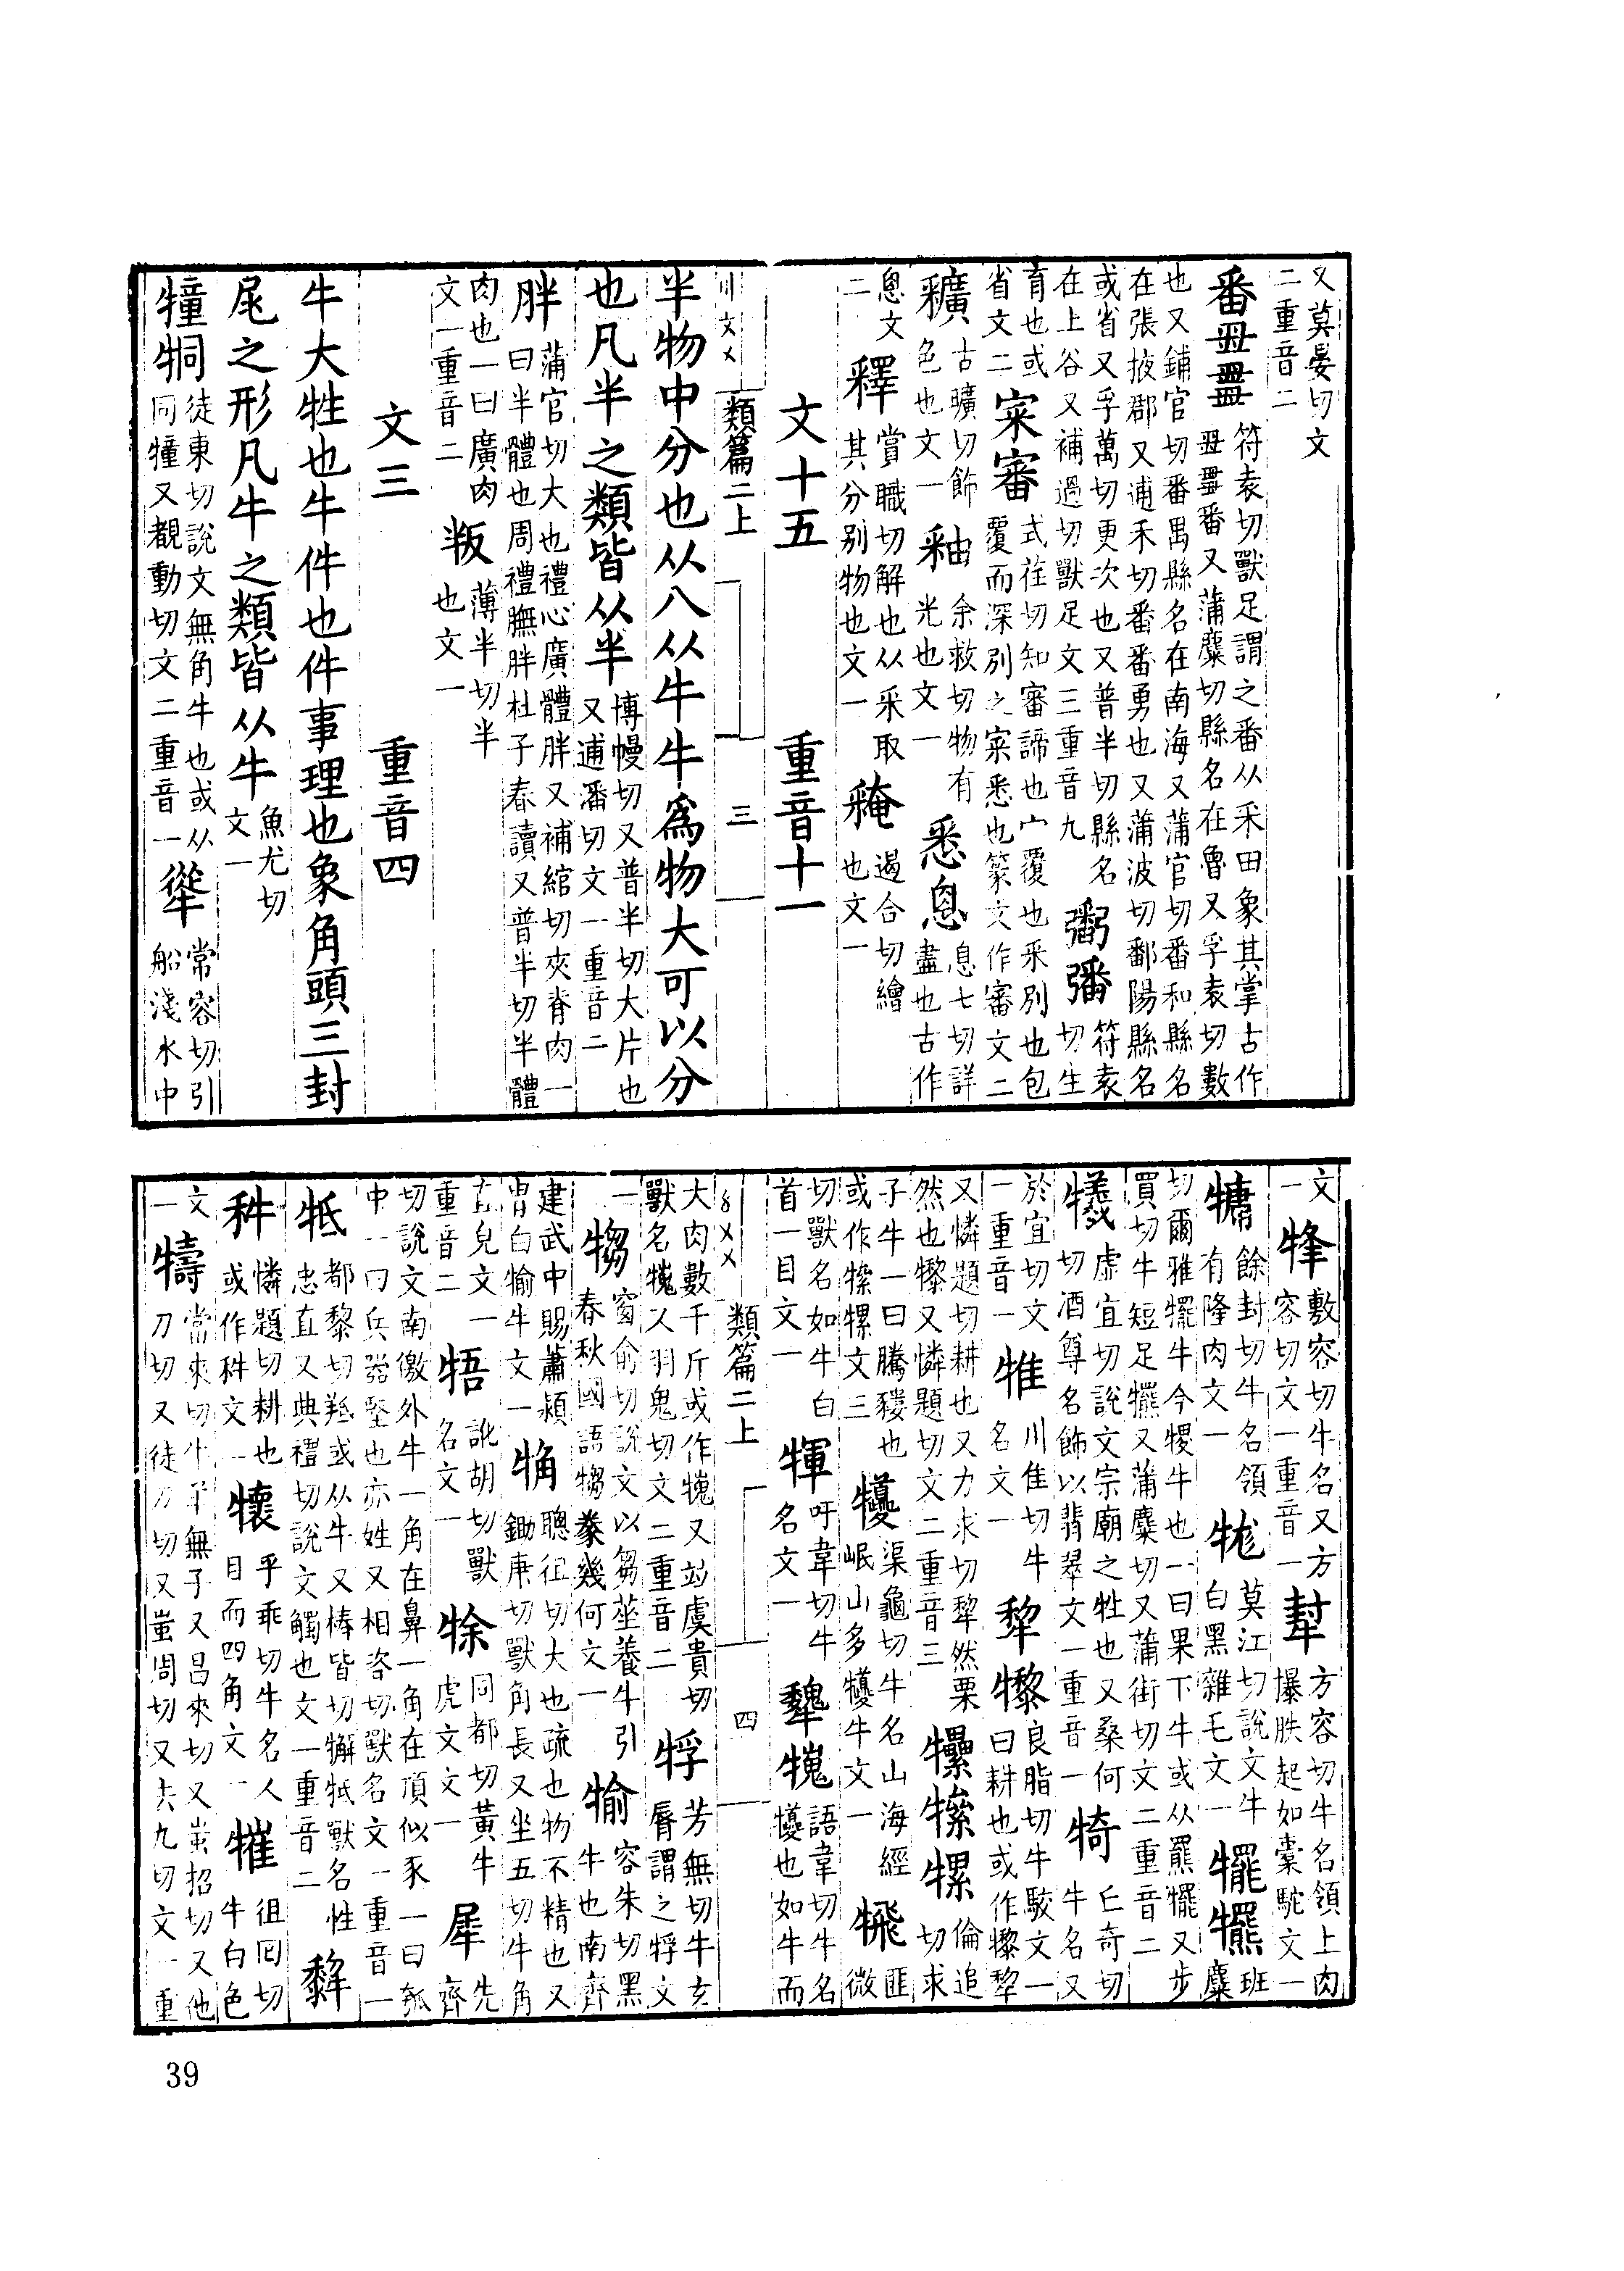 又莫晏切文二重音二
番𤰫𤲈符袁切獸足謂之番从釆田象其掌古作𤰫𤲈番又蒲麋切縣名在魯又孚袁切數
也又鋪官切番禺縣名在南海又蒲官切番和縣名在張掖郡又逋禾切番番勇也又蒲波切鄱陽縣名
或省又孚萬切更次也又普半切縣名在上谷又補過切獸足文三重音九符袁切生
育也或省文二宷審式荏切知審諦也宀覆也釆別也包覆而深別之宷悉也篆文作審文二
古曠切飾色也文一釉余救切物有光也文一悉恖息七切詳盡也古作
恖文二釋賞職切解也从釆取其分別物也文一遏合切繒也文一
文十五 重音十一
類篇二上 三
半物中分也从八从牛牛爲物大可以分
也凡半之類皆从半博幔切又普半切大片也又逋潘切文一重音二
胖蒲官切大也禮心廣體胖又補綰切夾脊肉一曰半體也周禮膴胖杜子春讀又普半切半體
肉也一曰廣肉文一重音二叛薄半切半也文一
文三 重音四
牛大牲也牛件也件事理也象角頭三封
尾之形凡牛之類皆从牛魚尤切文一
犝㸗徒東切說文無角牛也或从同犝又覩動切文二重音一常容切引船淺水中
文一㸼敷容切牛名又方容切文一重音一犎方容切牛名領上肉㹎胅起如橐駝文一
㹙餘封切牛名領有隆肉文一牻莫江切說文牛白黑雜毛文一㹃班麋
切爾雅犤牛今㹇牛也一曰果下牛或从羆犤又步買切牛短足犤又蒲麋切又蒲街切文二重音二
犧虛宜切說文宗廟之牲也又桑何切酒尊名飾以翡翠文一重音一犄丘奇切牛名又
於宜切文一重音一㹐川隹切牛名文一犂犁良脂切牛駁文一曰耕也或作
又憐題切耕也又力求切犂然栗然也又憐題切文二重音三倫追切求
子牛一曰騰㹎也或作文三犪渠龜切牛名山海經岷山多犪牛文一匪微
切獸名如牛白首一目文一㹆吁韋切牛名文一犩語韋切牛名犪也如牛而
類篇二上 四
大肉數千斤或作又䇐虞貴切獸名又羽鬼切文二重音二㸬芳無切牛玄脣謂之㸬文
一犓窗俞切說文以芻莝養牛引春秋國語犓豢幾何文一㸾容朱切黑牛也南齊
建武中賜蕭潁冑白㸾牛文一觕聰徂切大也疏也物不精也又鋤庚切獸角長又坐五切牛角
直皃文一重音二牾訛胡切獸名文一㹈同都切黃牛虎文文一犀先齊
切說文南徼外牛一角在鼻一角在頂似豕一曰瓠中一曰兵器堅也亦姓又相咨切獸名文一重音一
牴都黎切羝或从牛又棒皆切獬牴獸名性忠直又典禮切說文觸也文一重音二
憐題切耕也或作文一乎乖切牛名人目而四角文一㹐徂回切牛白色
文一㹗當來切牛羊無子又昌來切又蚩招切又他刀切又徒刀切又蚩周切又去九切文一重
39